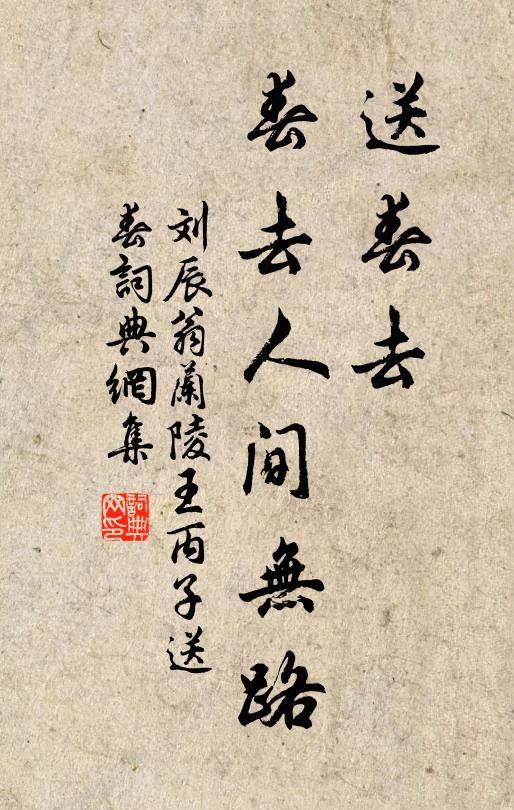 送春去
春去人间無路
刘辰翁蘭陵王丙子送
春詞典網集
詞典
网印